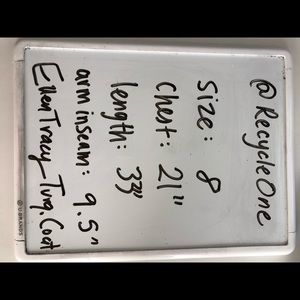 @RecycleOne
Size: 8
Chest: 21"
length: 33"
arm inseam: 9.5"
EllenTracy_Turq.Coat
U BRANDS